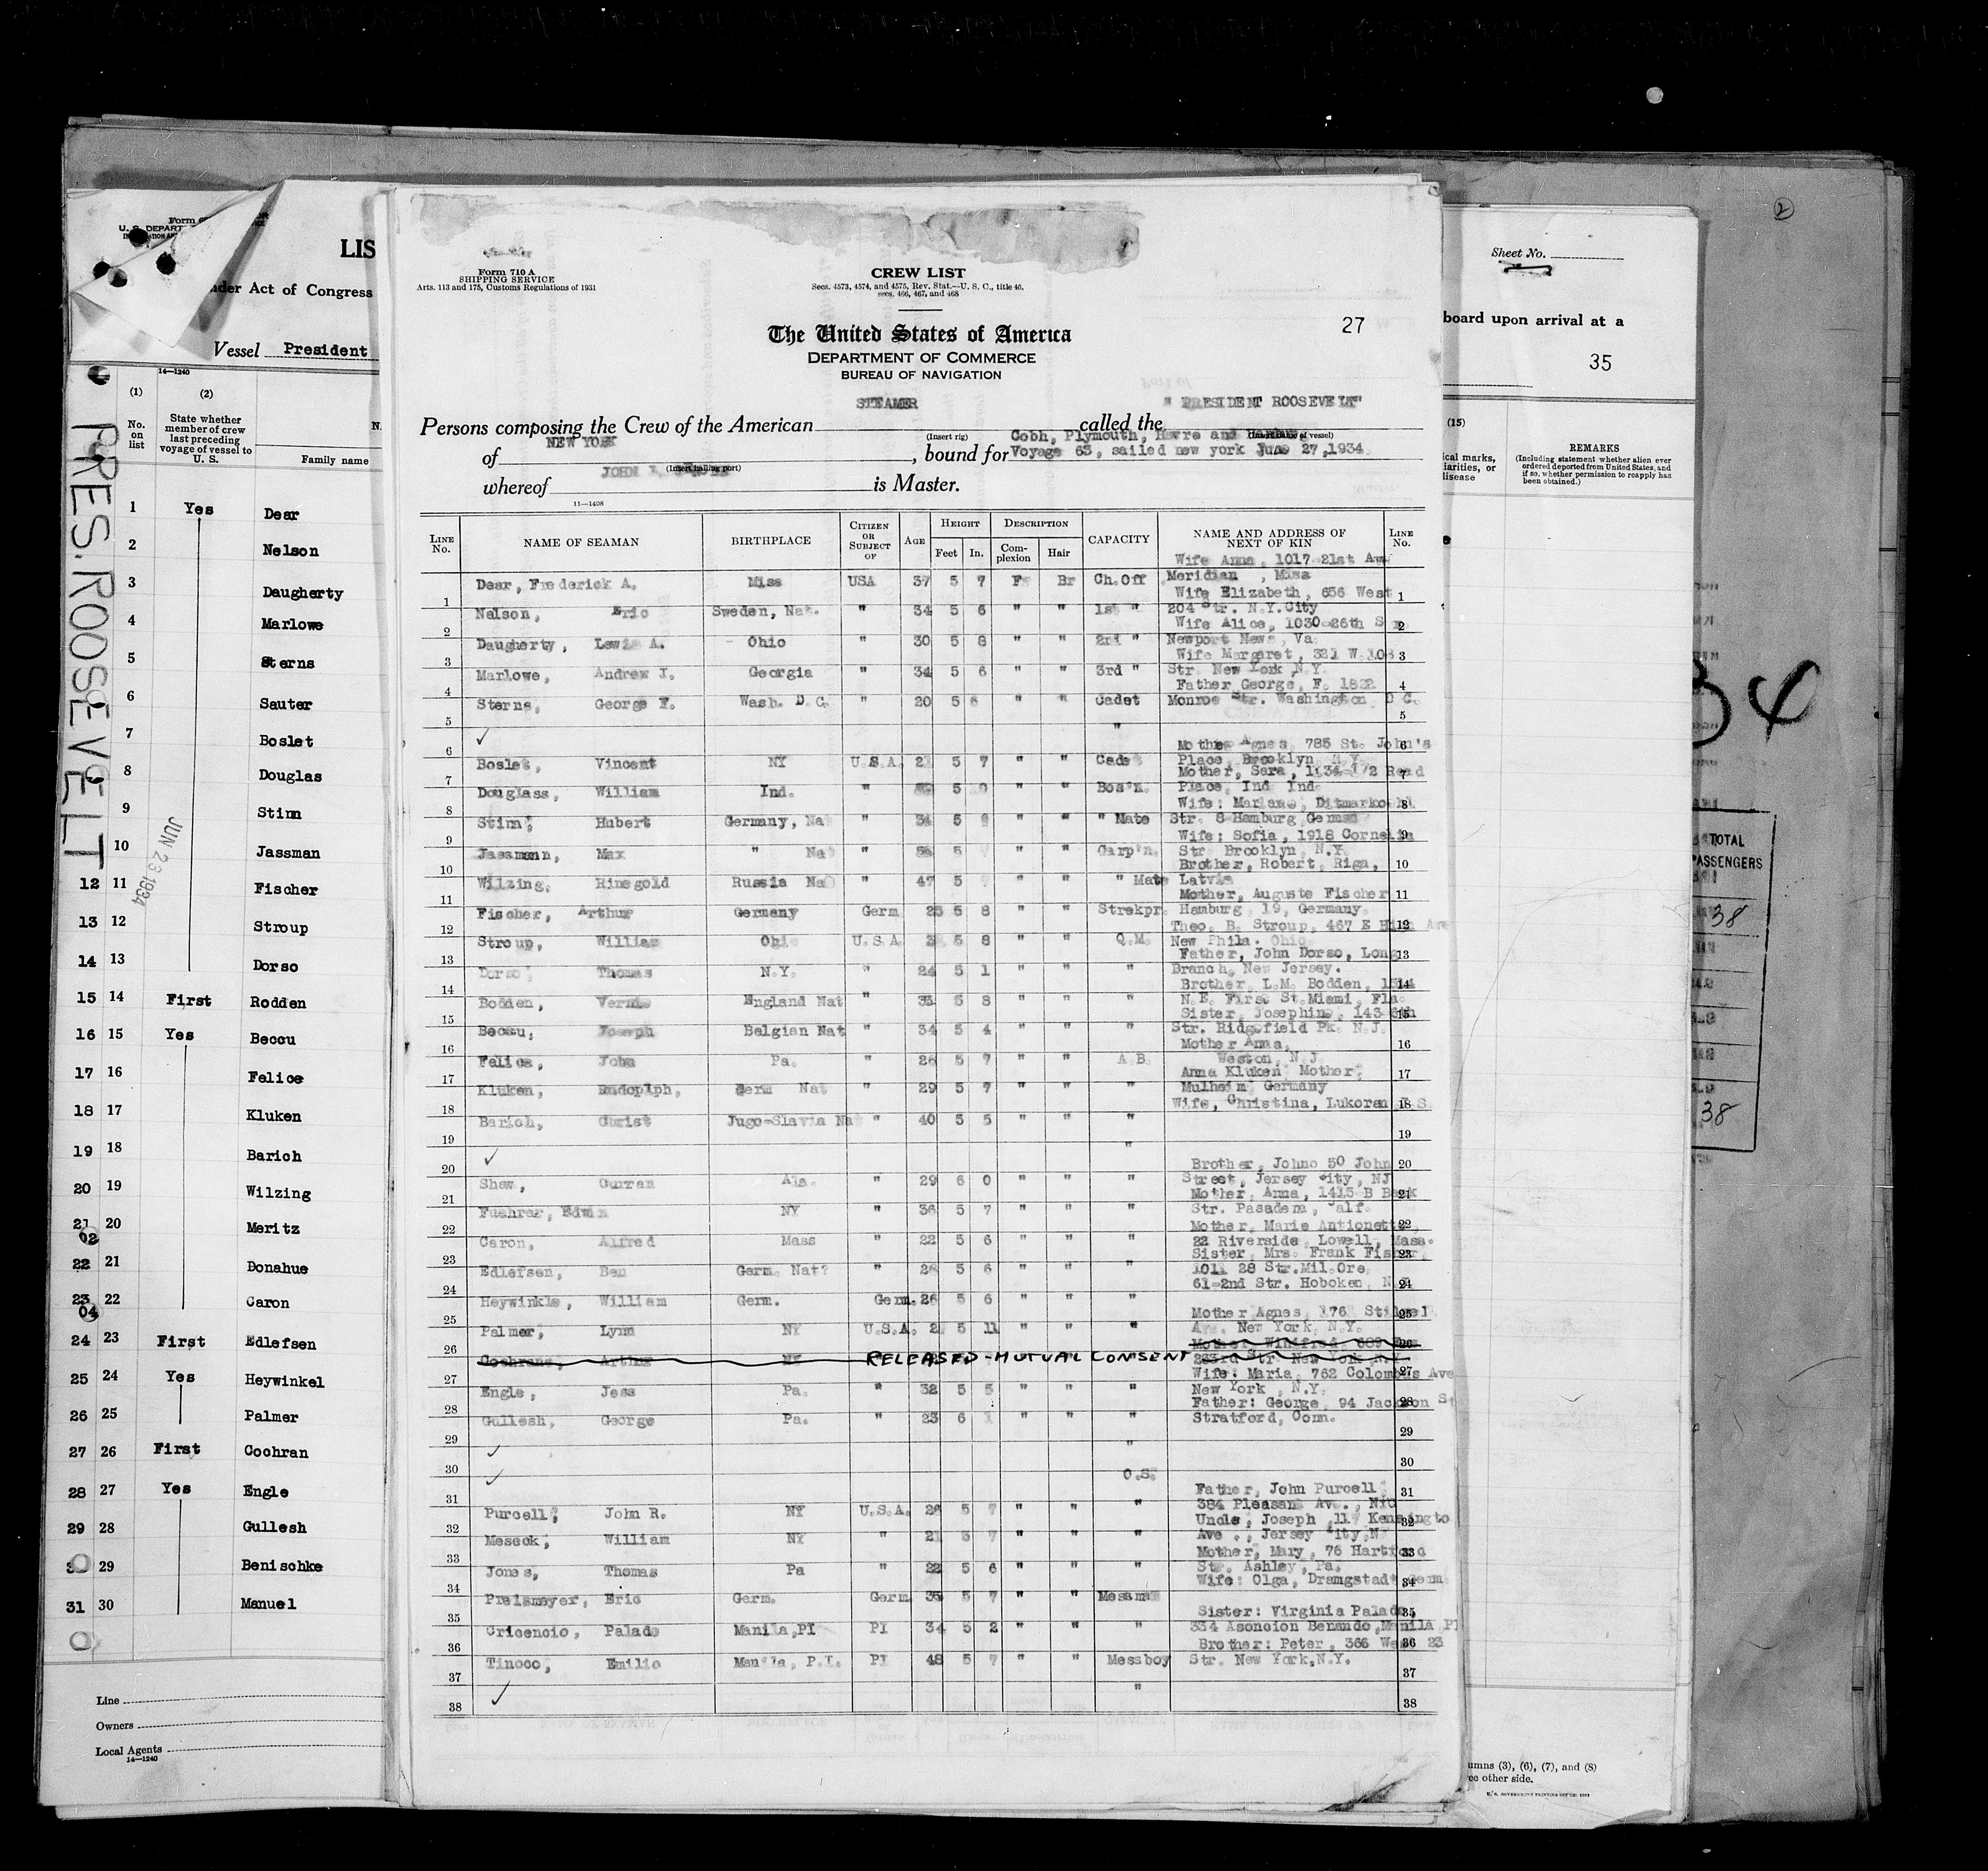 2
Form
U. S. DEPART
LIS
der Act of Congress
Vessel President
14—1240
(1) (2)
No. on list
State whether member of crew last preceding voyage of vessel to U. S.
Family name
PRES. ROOSEVELT
JUN 23 1934
1 Yes Dear
2 Nelson
3 Daugherty
4 Marlowe
5 Sterns
6 Sauter
7 Boslet
8 Douglas
9 Stimm
10 Jassman
12 11 Fischer
13 12 Stroup
14 13 Dorso
15 14 First Rodden
16 15 Yes Beccu
17 16 Felice
18 17 Kluken
19 18 Barich
20 19 Wilzing
21 20 Meritz
02
22 21 Donahue
23 22 Caron
04
24 23 First Edlefsen
25 24 Yes Heywinkel
26 25 Palmer
27 26 First Cochran
28 27 Yes Engle
29 28 Gullesh
29 Benischke
31 30 Manuel
Line
Owners
Local Agents
14—1240
Form 710 A
SHIPPING SERVICE
Arts. 113 and 175, Customs Regulations of 1931
CREW LIST
Secs. 4573, 4574, and 4575, Rev. Stat.—U. S. C., title 46,
secs. 466, 467, and 468
The United States of America
27
DEPARTMENT OF COMMERCE
BUREAU OF NAVIGATION
STEAMER " PRESIDENT ROOSEVELT"
Persons composing the Crew of the American called the
(Insert rig) (Insert name of vessel)
of NEW YORK , bound for Cobh, Plymouth, Havre and
(Insert hailing port) Voyage 63, sailed new york June 27,1934
whereof JOHN is Master.
11—1408
LINE No. NAME OF SEAMAN BIRTHPLACE CITIZEN OR SUBJECT OF AGE HEIGHT Feet In. DESCRIPTION Complexion Hair CAPACITY NAME AND ADDRESS OF NEXT OF KIN LINE No.
Wife Anna, 1017-21st Av
Dear, Frederick A. Miss USA 37 5 7 F Br Ch.Off Meridian , Miss
1 Wife Elizabeth, 656 West 1
Nelson, Eric Sweden, Nat. " 34 5 6 " " 1st " 204 Str. N.Y.City
2 Wife Alice, 1030-26th 2
Daugherty, Lewis A. Ohio " 30 5 8 " " 2nd " Newport News, Va.
3 Wife Margaret, 321 W. 3
Marlowe, Andrew J. Georgia " 34 5 6 " " 3rd " Str. New York N.Y.
4 Father George, F. 1822 4
Sterns, George F. Wash. D.C. " 20 5 6 " " Cadet Monroe Str. Washington D C.
5 " 5
✓
6 Mother Agnes, 785 St. John's 6
Boslet, Vincent NY U.S.A. 5 7 " " Cadet Place, Brooklyn N.Y.
7 Mother, Sara, 1134-1/2 Read 7
Douglass, William Ind. " 5 " " Bos'n. Place, Ind Ind.
8 Wife: Mariane, 8
Stimm, Hubert Germany, Na " 34 5 " " " Mate Str. 8 Hamburg German
9 Wife: Sofia, 1918 Cornelia 9
Jassmann, Max " Na " 5 " " Carp'n. Str. Brooklyn, N.Y.
10 Brother, Robert, Riga, 10
Wilzing, Rinegold Russia Na " 47 5 " " " Mate Latvia
11 Mother, Auguste Fischer 11
Fischer, Arthur Germany Germ 5 8 " " Strekpr. Hamburg, 19, Germany.
12 Theo. B. Stroup, 467 E 12
Stroup, William Ohio U.S.A. 5 8 " " Q.M. New Phila. Ohio
13 Father, John Dorso, Long 13
Dorso, Thomas N.Y. " 24 5 1 " " " Branch, New Jersey.
14 Brother, L.M. Bodden, 14
Bodden, Vernie England Nat " 35 5 8 " " " N.E. First St.Miami, Fla.
15 Sister, Josephine, 143 15
Beccu, Joseph Belgian Nat " 34 5 4 " " " Str. Ridgefield Pk. N.J.
16 Mother Anna, 16
Felice, John Pa. " 26 5 7 " " A.B. Weston, N.J.
17 Anna Kluken Mother, 17
Kluken, Rudolph, Germ Nat " 29 5 7 " " " Mulheim Germany
18 Wife, Christina, Lukoran 18
Barich, Christ Jugo-Slavia Na " 40 5 5 " " "
19 " 19
✓
20 Brother, John 50 John 20
Shaw, Curran Ala. " 29 6 0 " " " Street, Jersey City, NJ
21 Mother, Anna, 1415 B 21
Fuehrer, Edwin NY " 36 5 7 " " " Str. Pasadena, Calf.
22 Mother, Marie Antionette, 22
Caron, Alfred Mass " 22 5 6 " " " 22 Riverside, Lowell, Mass.
23 Sister, Mrs. Frank Fisher, 23
Edlefsen, Ben Germ. Nat? " 28 5 6 " " " 1011 28 Str.Mil.Ore.
24 61-2nd Str. Hoboken, N. 24
Heywinkle, William Germ. Germ. 26 5 6 " " "
25 Mother Agnes, 176 25
Palmer, Lynn NY U.S.A. 5 11 " " " Av. New York, N.Y.
26 Mother, Winifred, 689 26
Cochrane, Arthur NY RELEASED-MUTUAL CONSENT 233rd Str. New York N.Y.
27 Wife: Maria, 762 Colombus Ave 27
Engle, Jess Pa. " 32 5 5 " " " New York, N.Y.
28 Father: George, 94 Jackson St 28
Gullesh, George Pa. " 23 6 " " " Stratford, Conn.
29 " 29
✓
30 O.S. 30
✓
31 Father, John Purcell 31
Purcell, John R. NY U.S.A. 26 5 7 " " " 384 Pleasant Av., NYC
32 Uncle, Joseph, 117 Kensington 32
Meseck, William NY " 21 5 7 " " " Ave., Jersey City, N
33 Mother, Mary, 76 33
Jones, Thomas Pa " 22 5 6 " " " Str. Ashley, Pa.
34 Wife: Olga, Dramgstadt Germ. 34
Preismeyer, Eric Germ. Germ. 35 5 7 " " Messman
35 Sister: Virginia Palado, 35
Cricencio, Palado Manila,PI PI 34 5 2 " " " 334 Asoncion Benando,Manila PI
36 Brother: Peter, 366 West 23 36
Tinoco, Emilio Manila, P.I. PI 48 5 7 " " Messboy Str. New York,N.Y.
37 " 37
✓
38 38
Sheet No.
board upon arrival at a
35
(15)
ical marks,
iarities, or
disease
REMARKS
(Including statement whether alien ever ordered deported from United States, and if so, whether permission to reapply has been obtained.)
34
TOTAL
PASSENGERS
38
38
umns (3), (6), (7), and (8)
ee other side.
U. S. GOVERNMENT PRINTING OFFICE